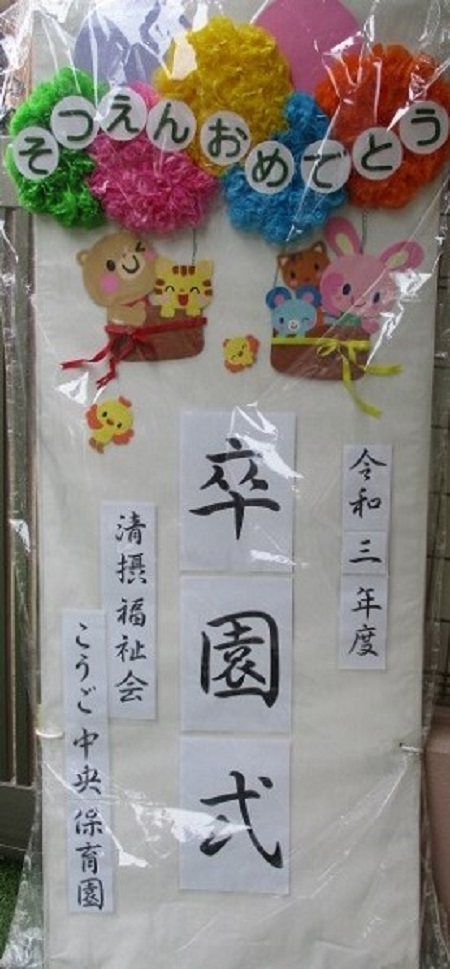 そつえんおめでとう
令和三年度
卒園式
清摂福祉会
こうご中央保育園